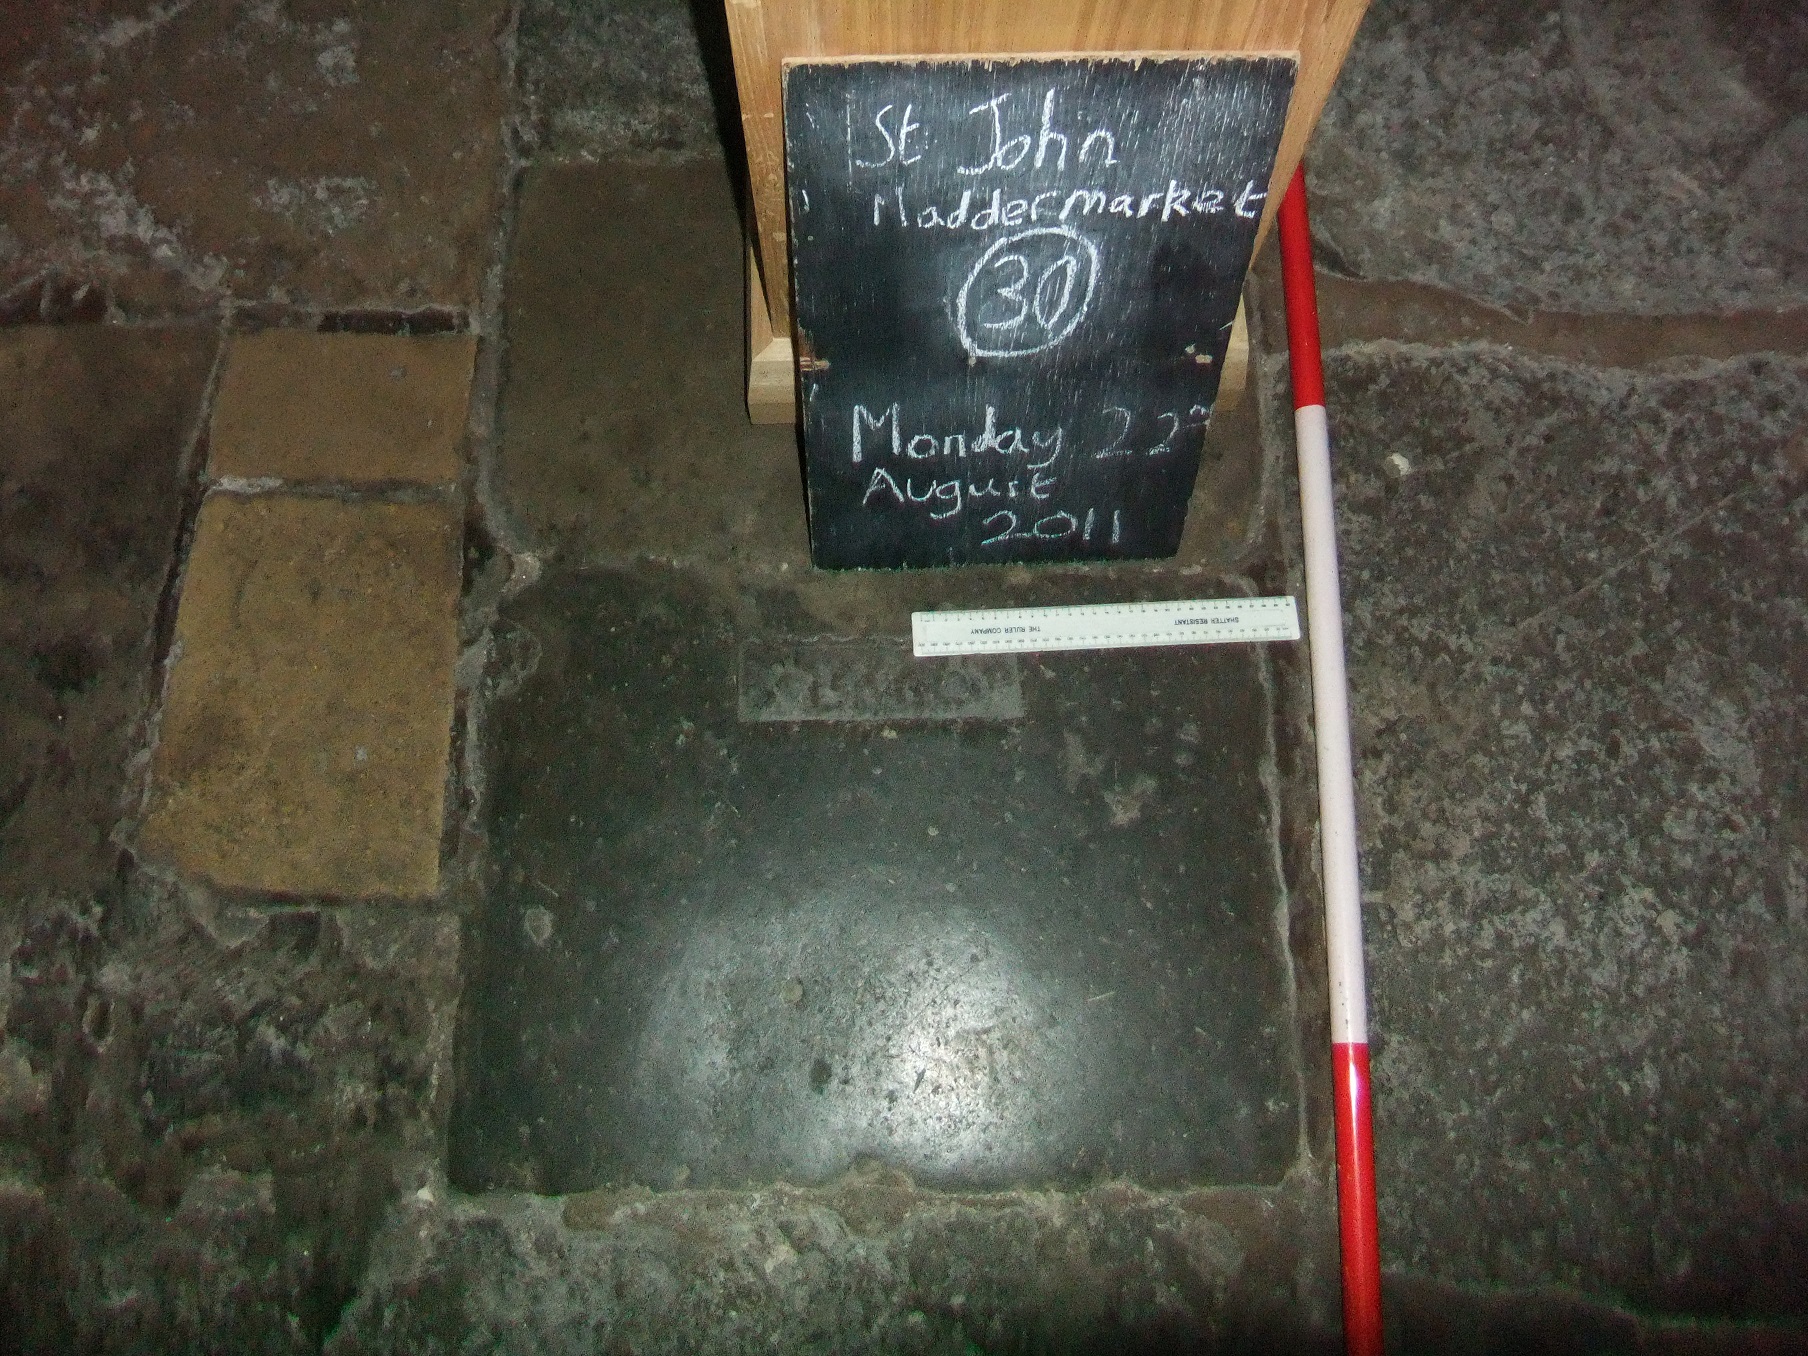 St John
Maddermarket
30
Monday 22nd
August
2011
SHATTER RESISTANT
THE RULER COMPANY